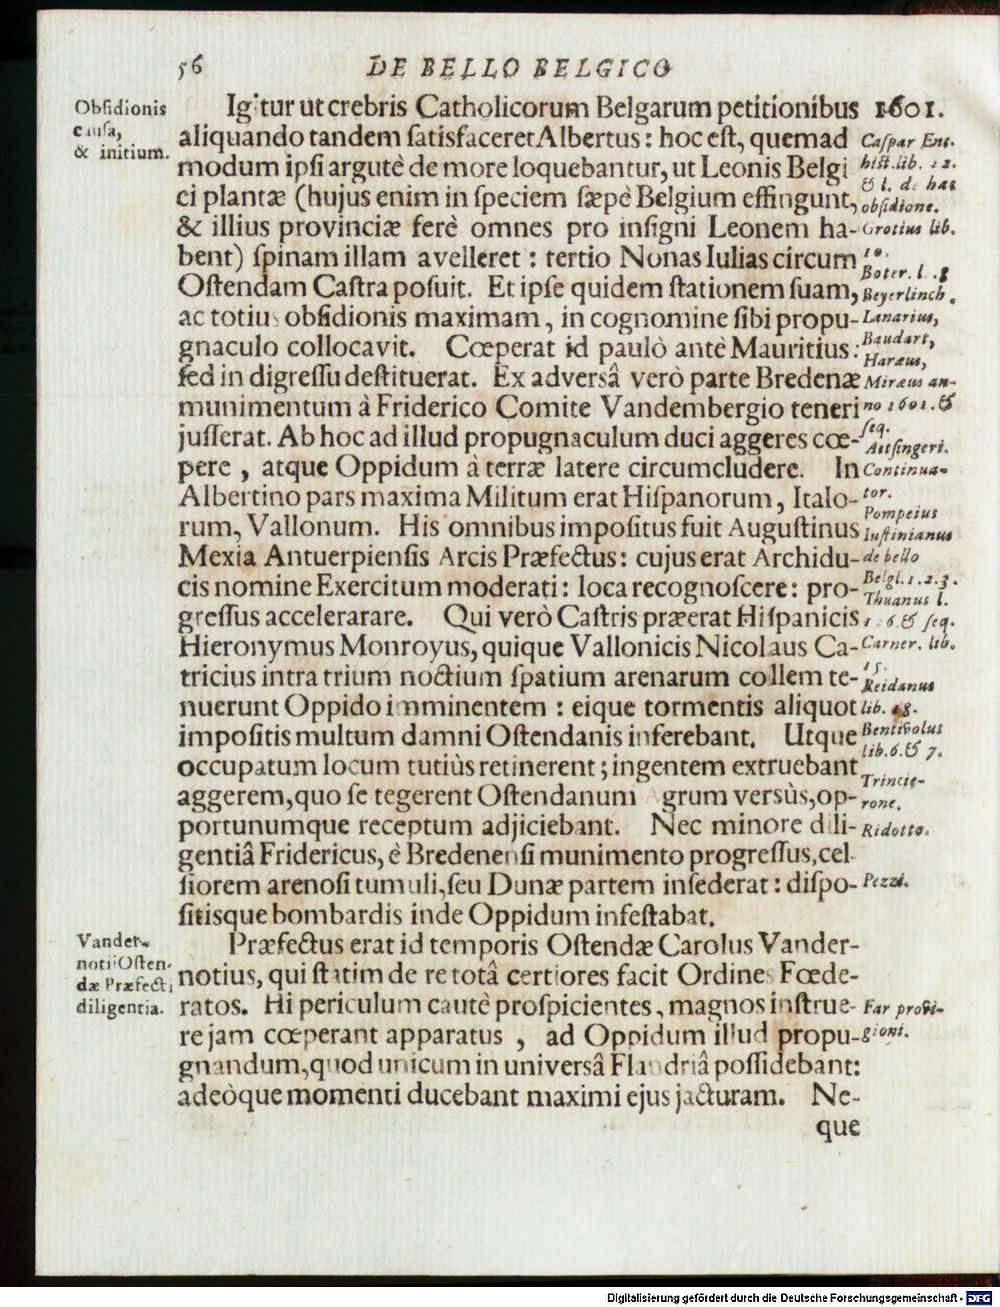 56 DE BELLO BELGICO
Obſidionis
cauſa,
& initium.
Igitur ut crebris Catholicorum Belgarum petitionibus
aliquando tandem ſatisfaceret Albertus: hoc eſt, quemad
modum ipſi argutè de more loquebantur, ut Leonis Belgi
ci plantæ (hujus enim in ſpeciem ſæpè Belgium effingunt,
& illius provinciæ ferè omnes pro inſigni Leonem ha-
bent) ſpinam illam avelleret: tertio Nonas Iulias circum
Oſtendam Caſtra poſuit. Et ipſe quidem ſtationem ſuam,
ac totius obſidionis maximam, in cognomine ſibi propu-
gnaculo collocavit. Cœperat id paulò antè Mauritius:
ſed in digreſſu deſtituerat. Ex adversâ verò parte Bredenæ
munimentum à Friderico Comite Vandembergio teneri
juſſerat. Ab hoc ad illud propugnaculum duci aggeres cœ-
pere, atque Oppidum à terræ latere circumcludere. In
Albertino pars maxima Militum erat Hiſpanorum, Italo-
rum, Vallonum. His omnibus impoſitus fuit Auguſtinus
Mexia Antuerpienſis Arcis Præfectus: cujus erat Archidu-
cis nomine Exercitum moderati: loca recognoſcere: pro-
greſſus accelerarare. Qui verò Caſtris præerat Hiſpanicis
Hieronymus Monroyus, quique Vallonicis Nicolaus Ca-
tricius intra trium noctium ſpatium arenarum collem te-
nuerunt Oppido imminentem: eique tormentis aliquot
impoſitis multum damni Oſtendanis inferebant. Utque
occupatum locum tutiùs retinerent; ingentem extruebant
aggerem, quo ſe tegerent Oſtendanum grum versùs, op-
portunumque receptum adjiciebant. Nec minore dili-
gentiâ Fridericus, è Bredenenſi munimento progreſſus, cel
ſiorem arenoſi tumuli, ſeu Dunæ partem inſederat: diſpo-
ſitisque bombardis inde Oppidum infeſtabat.
Vander-
notii Oſten-
dæ Præfecti
diligentia.
Præfectus erat id temporis Oſtendæ Carolus Vander-
notius, qui ſtatim de re totâ certiores facit Ordines Fœde-
ratos. Hi periculum cautè proſpicientes, magnos inſtrue-
re jam cœperant apparatus, ad Oppidum illud propu-
gnandum, quod unicum in universâ Flandriâ poſſidebant:
adeòque momenti ducebant maximi ejus jacturam. Ne-
que
1601.
Caſpar Ent.
hiſt. lib. 12.
& l. de hac
obſidione.
Grotius lib.
10.
Boter. l. 8
Beyerlinch.
Lanarius,
Baudart,
Haræus,
Miræus an-
no 1601. &
ſeq.
Aitſingeri.
Continua-
tor.
Pompeius
Iuſtinianus
de bello
Belgl. 1. 2. 3.
Thuanus l.
6. & ſeq.
Carner. lib.
15.
Reidanus
lib. 18.
Bentivolus
lib. 6. & 7.
Trincie-
rone.
Ridotto.
Pezzi.
Far provi-
gioni.
Digitalisierung gefördert durch die Deutsche Forschungsgemeinschaft - DFG